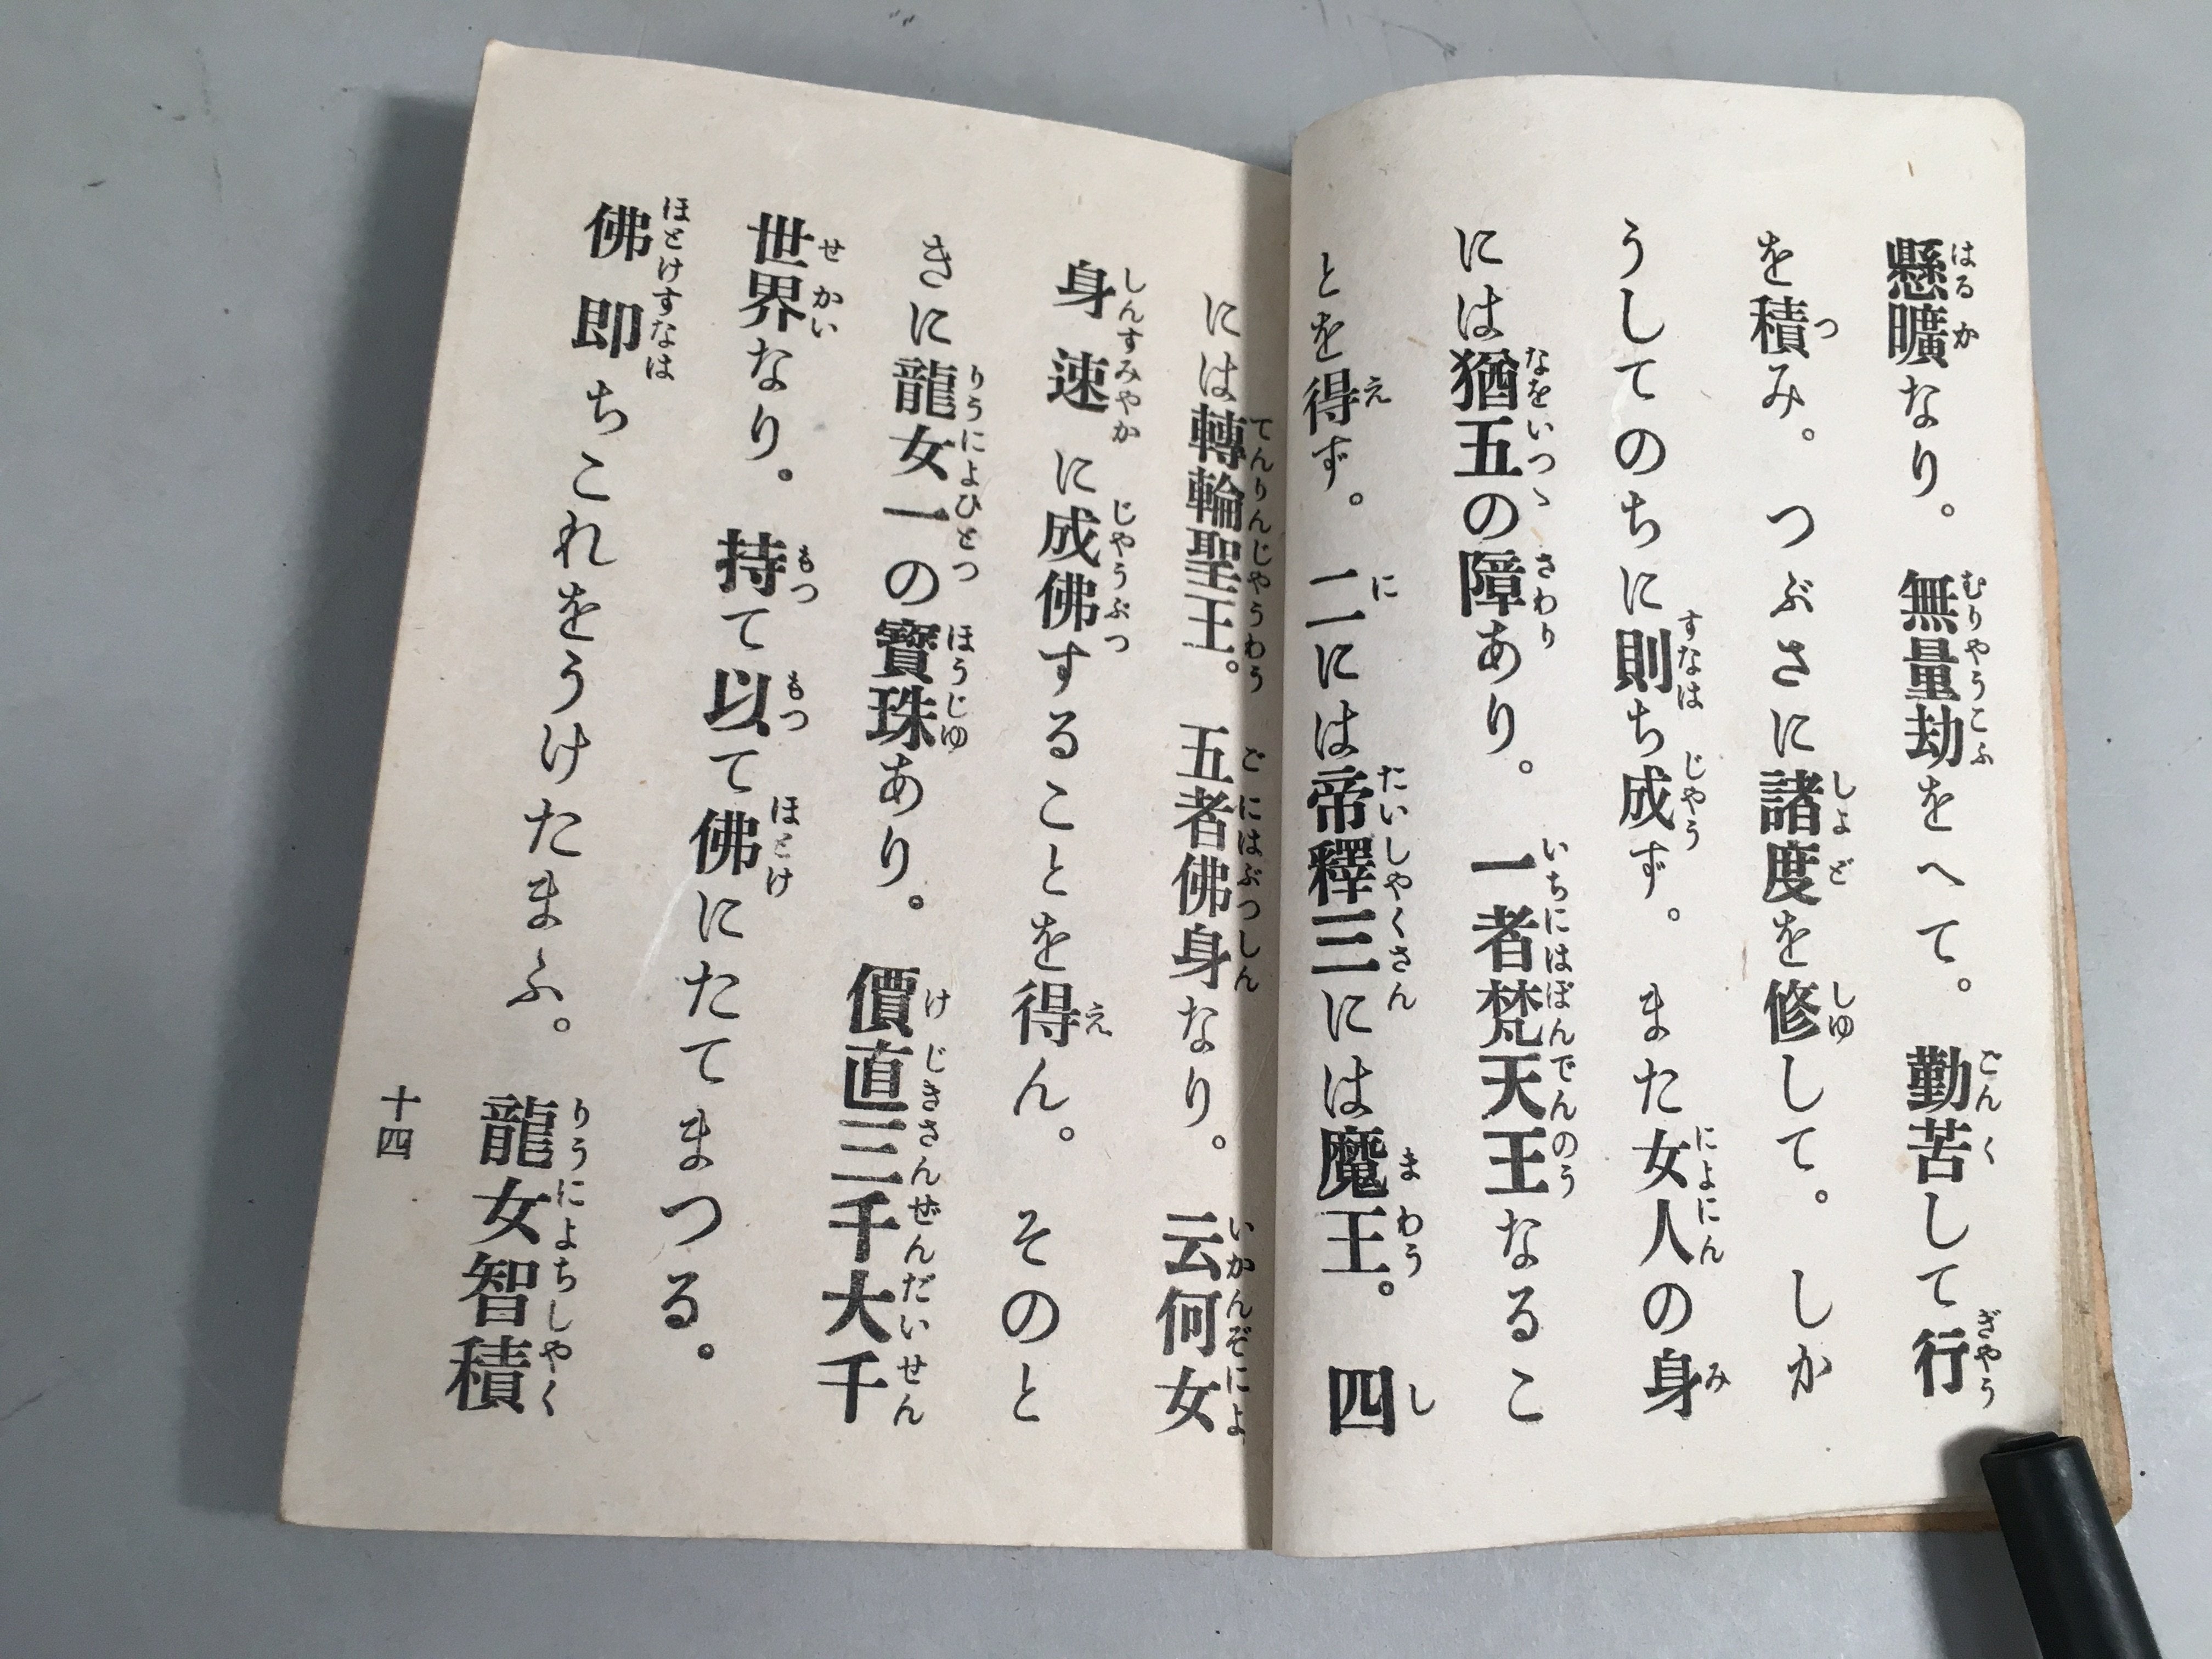 懸曠なり。無量劫をへて。勤苦して行
を積み。つぶさに諸度を修して。しか
うしてのちに則ち成ず。また女人の身
には猶五の障あり。一者梵天王なるこ
とを得ず。二には帝釋三には魔王。四
には轉輪聖王。五者佛身なり。云何女
身速に成佛することを得ん。そのと
きに龍女一の寶珠あり。價直三千大千
世界なり。持て以て佛にたてまつる。
佛即ちこれをうけたまふ。龍女智積
十四